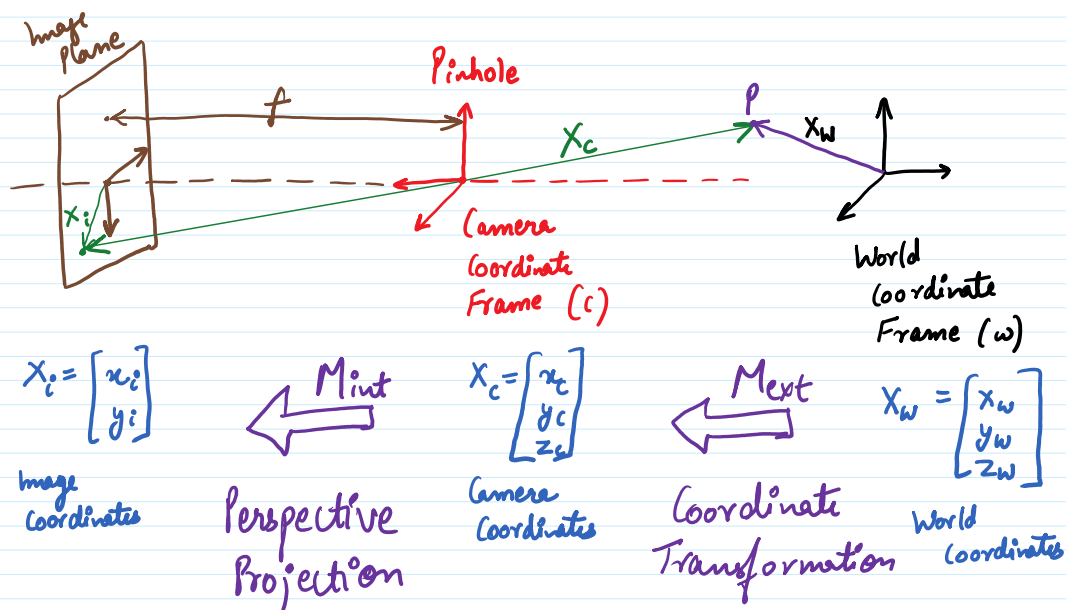 Image
Plane
Pinhole
f
P
Xc
Xw
Xi
Camera
Coordinate
Frame (C)
World
Coordinate
Frame (w)
Xi = [xi
yi]
Mint
Xc = [xc
yc
zc]
Mext
Xw = [xw
yw
zw]
Image
Coordinates
Perspective
Projection
Camera
Coordinates
Coordinate
Transformation
World
Coordinates